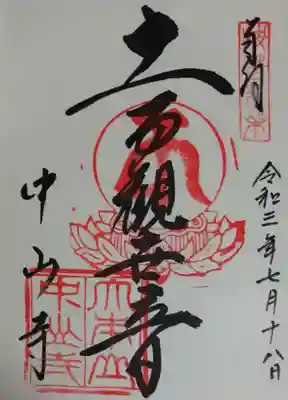 奉拝
令和三年七月十八日
十一面觀世音
中山寺
大本山
中山寺